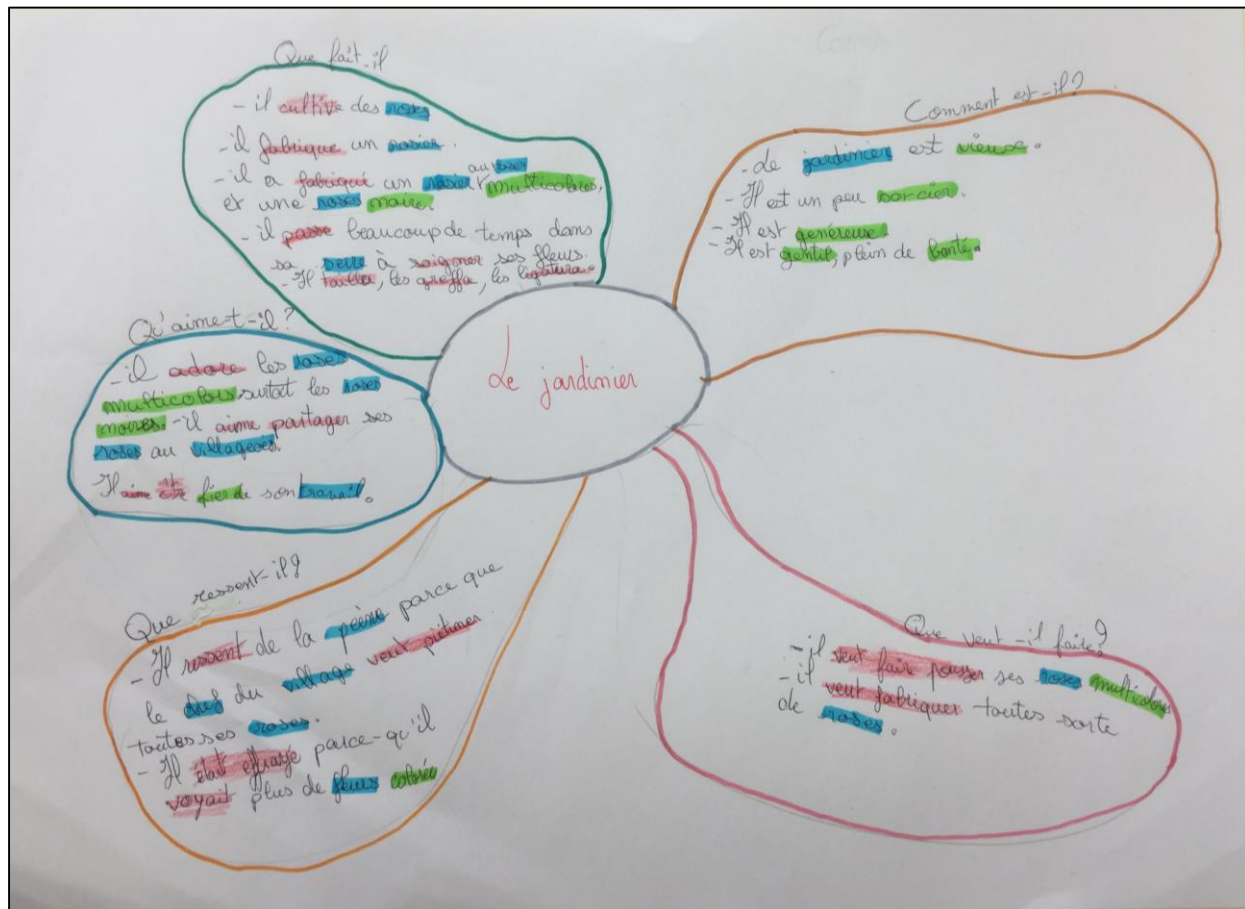 Que fait-il
- il cultive des roses
- il fabrique un rosier.
au roses
- il a fabriqué un rosier multicolores,
et une roses noire.
- il passe beaucoup de temps dans
sa serre à soigner ses fleurs.
- Il tailla, les greffa, les ligatura.
Comment est-il?
- Le jardinier est vieuse.
- Il est un peu sorcier.
- Il est genéreuse.
- Il est gentil, plein de bonté.
Qu'aime-t-il?
- il adore les roses
multicolors surtout les roses
noires. - il aime partager ses
roses au villageois.
Il aime être fier de son travail.
Le jardinier
Que ressent-il?
- Il ressent de la peine parce que
le chef du village veut piétiner
toutes ses roses.
- Il était effrayé parce-qu'il
voyait plus de fleurs colorée
Que veut-il faire?
- il veut fair pousser ses roses multicolores
- il veut fabriquer toutes sorte
de roses.